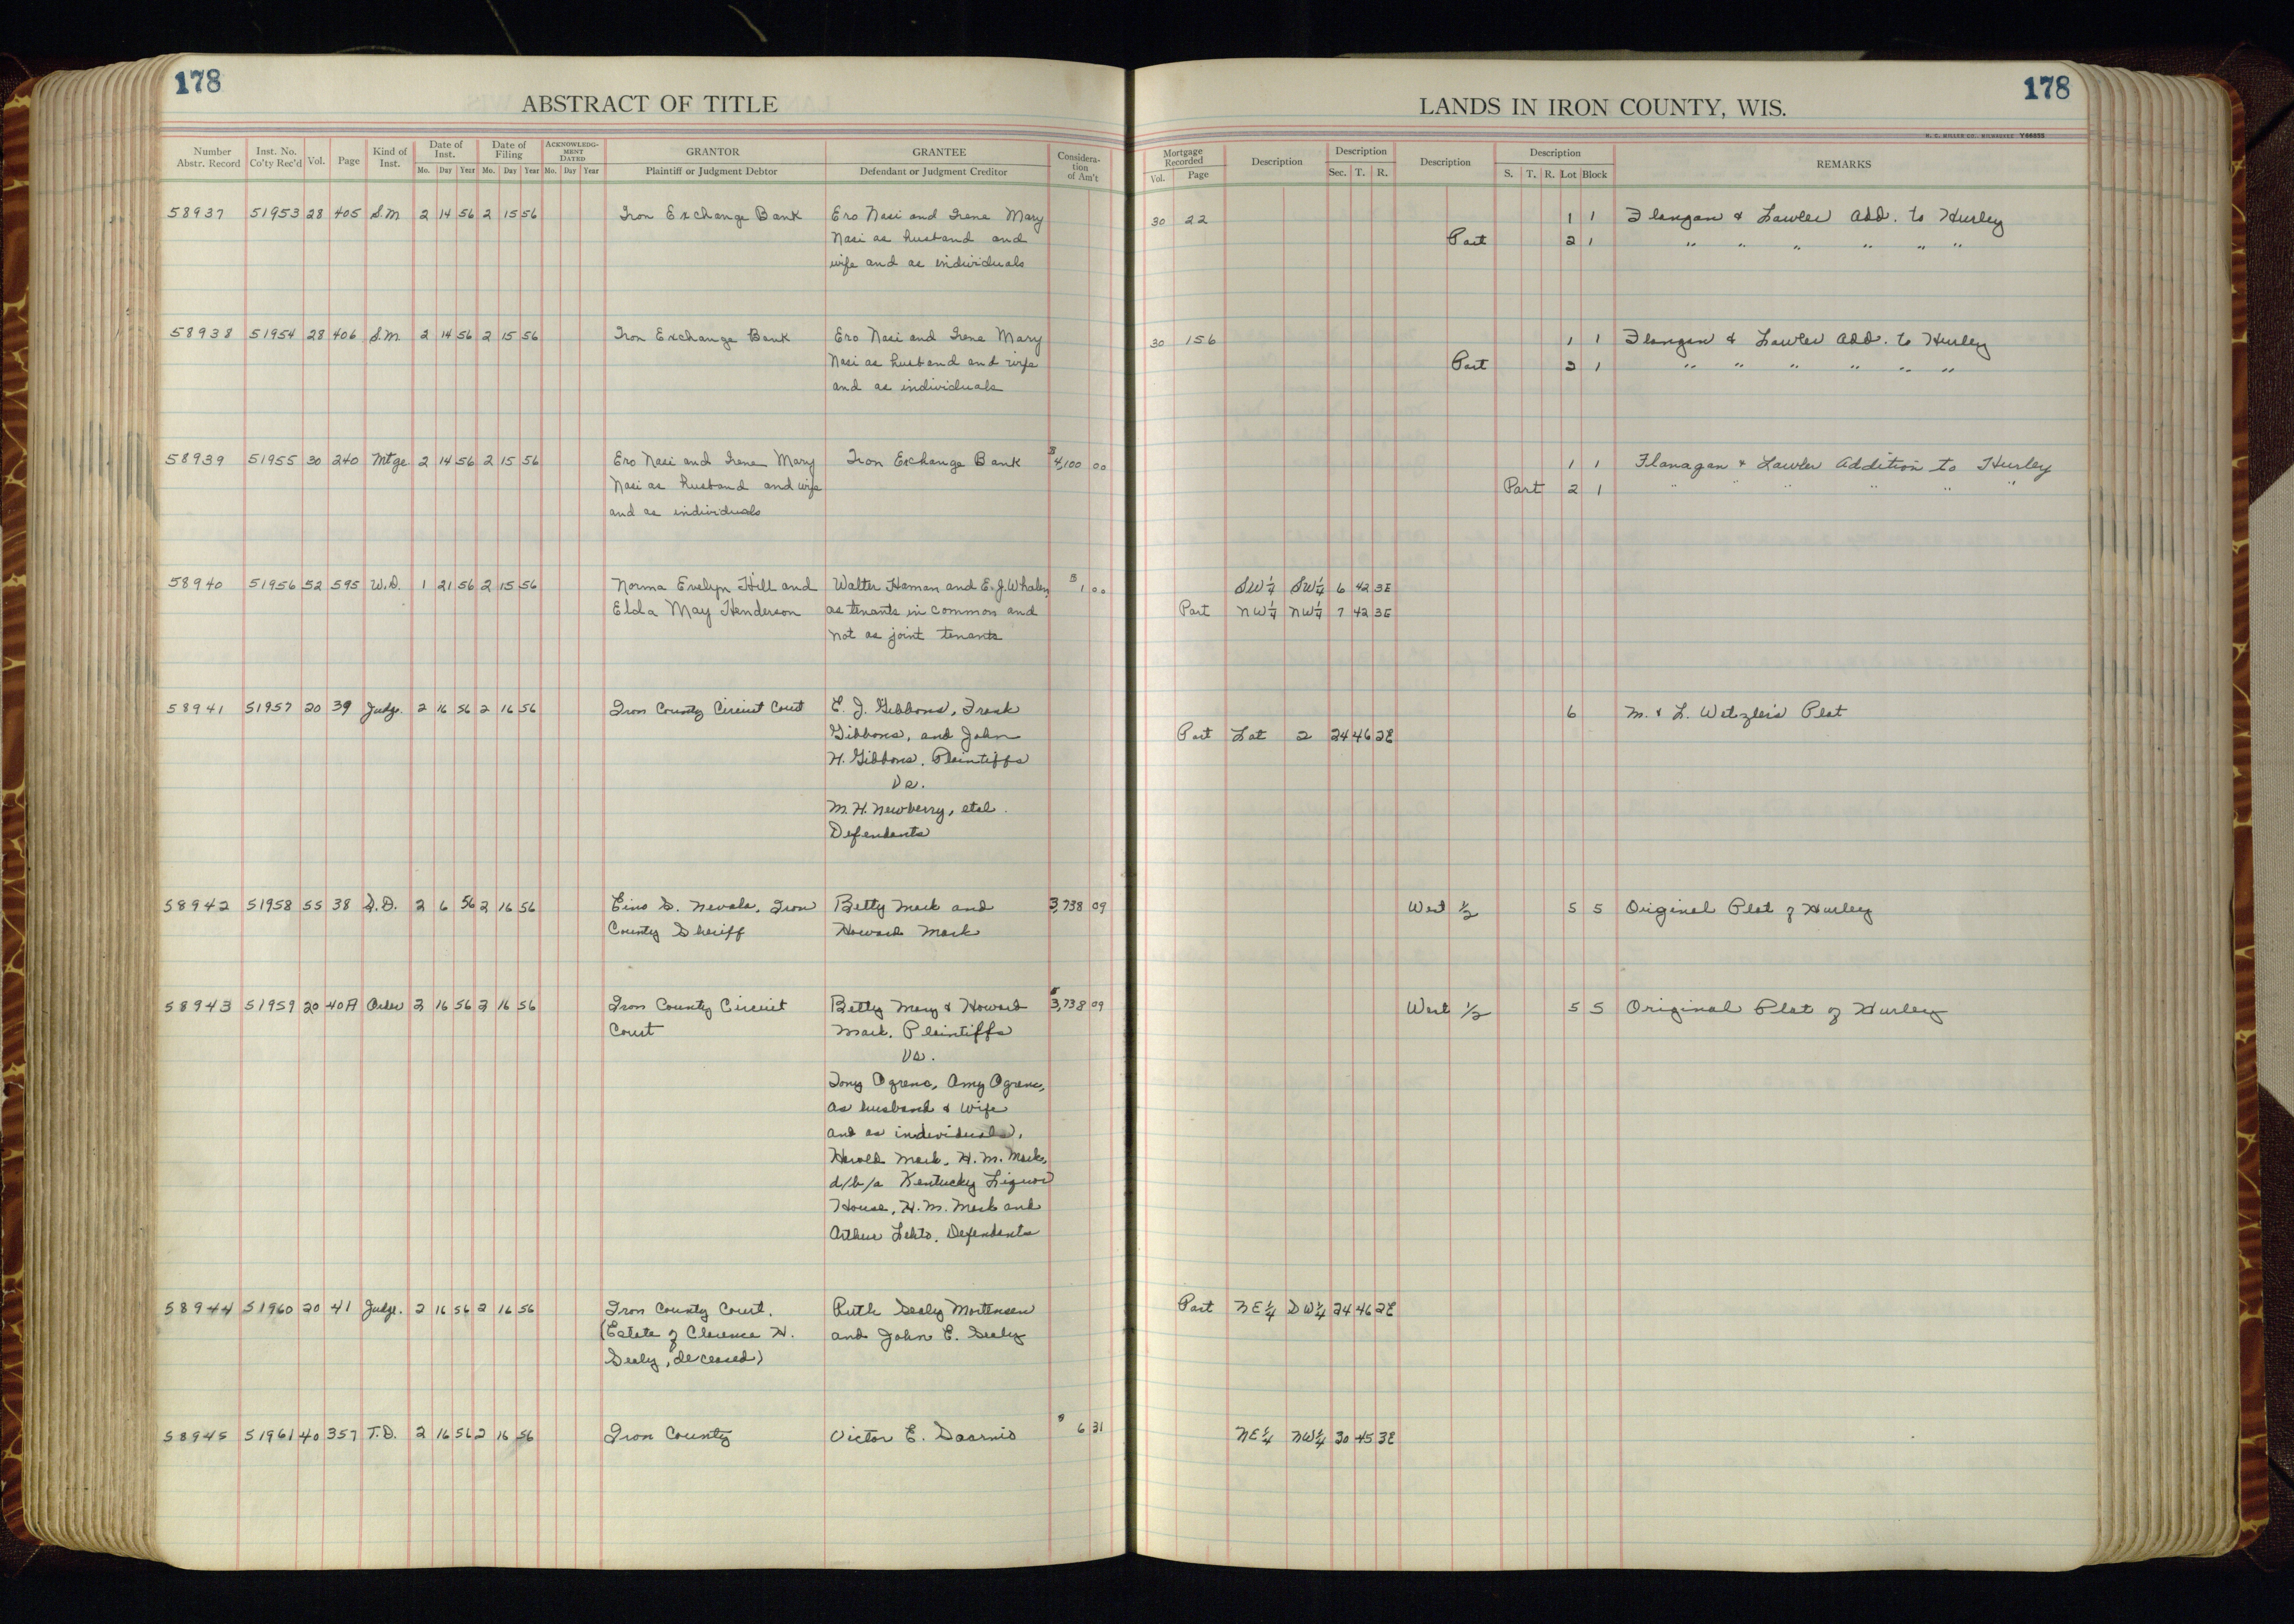 178
ABSTRACT OF TITLE
Number Abstr. Record | Inst. No. Co'ty Rec'd | Vol. | Page | Kind of Inst. | Date of Inst. Mo. Day Year | Date of Filing Mo. Day Year | ACKNOWLEDGMENT DATED Mo. Day Year | GRANTOR Plaintiff or Judgment Debtor | GRANTEE Defendant or Judgment Creditor | Consideration of Am't
58937 51953 28 405 S.M. 2 14 56 2 15 56 Iron Exchange Bank Ero Nasi and Irene Mary
Nasi as husband and
wife and as individuals
58938 51954 28 406 S.M. 2 14 56 2 15 56 Iron Exchange Bank Ero Nasi and Irene Mary
Nasi as husband and wife
and as individuals
58939 51955 30 240 Mtge 2 14 56 2 15 56 Ero Nasi and Irene Mary Iron Exchange Bank $4,100 00
Nasi as husband and wife
and as individuals
58940 51956 52 595 W.D. 1 21 56 2 15 56 Norma Evelyn Hill and Walter Haman and E.J. Whalen $1 00
Elda May Henderson as tenants in common and
not as joint tenants
58941 51957 20 39 Judge. 2 16 56 2 16 56 Iron County Circuit Court E. J. Gibbons, Frank
Gibbons, and John
H. Gibbons, Plaintiffs
Vs.
M. H. Newberry, etal.
Defendants
58942 51958 55 38 S.D. 2 6 56 2 16 56 Eino S. Nevala, Iron Betty Mark and 3,738 09
County Sheriff Howard Mark
58943 51959 20 40A Order 2 16 56 2 16 56 Iron County Circuit Betty Mary & Howard $3,738 09
Court Mark, Plaintiffs
Vs.
Tony Ogrenc, Amy Ogrenc,
as husband & wife
and as individuals,
Harold Mark, H. M. Mark,
d/b/a Kentucky Liquor
House, H. M. Mark and
Arthur Lehto, Defendants
58944 51960 20 41 Judge. 2 16 56 2 16 56 Iron County Court, Ruth Sealy Mortensen
(Estate of Clarence H. and John E. Sealy
Sealy, deceased)
58945 51961 40 357 T.D. 2 16 56 2 16 56 Iron County Victor E. Saarnio $6 31
178
LANDS IN IRON COUNTY, WIS.
H. C. MILLER CO., MILWAUKEE Y66635
Mortgage Recorded Vol. Page | Description | Description Sec. T. R. | Description | Description S. T. R. Lot Block | REMARKS
30 22 1 1 Flangan & Lawler Add. to Hurley
Part 2 1 " " " " " "
30 156 1 1 Flangan & Lawler Add. to Hurley
Part 2 1 " " " " " "
1 1 Flanagan & Lawler Addition to Hurley
Part 2 1 " " " " " "
SW¼ SW¼ 6 42 3E
Part NW¼ NW¼ 7 42 3E
6 M. & L. Wetzler's Plat
Part Lot 2 24 46 2E
West ½ 5 5 Original Plat of Hurley
West ½ 5 5 Original Plat of Hurley
Part NE¼ SW¼ 24 46 2E
NE¼ NW¼ 30 45 3E